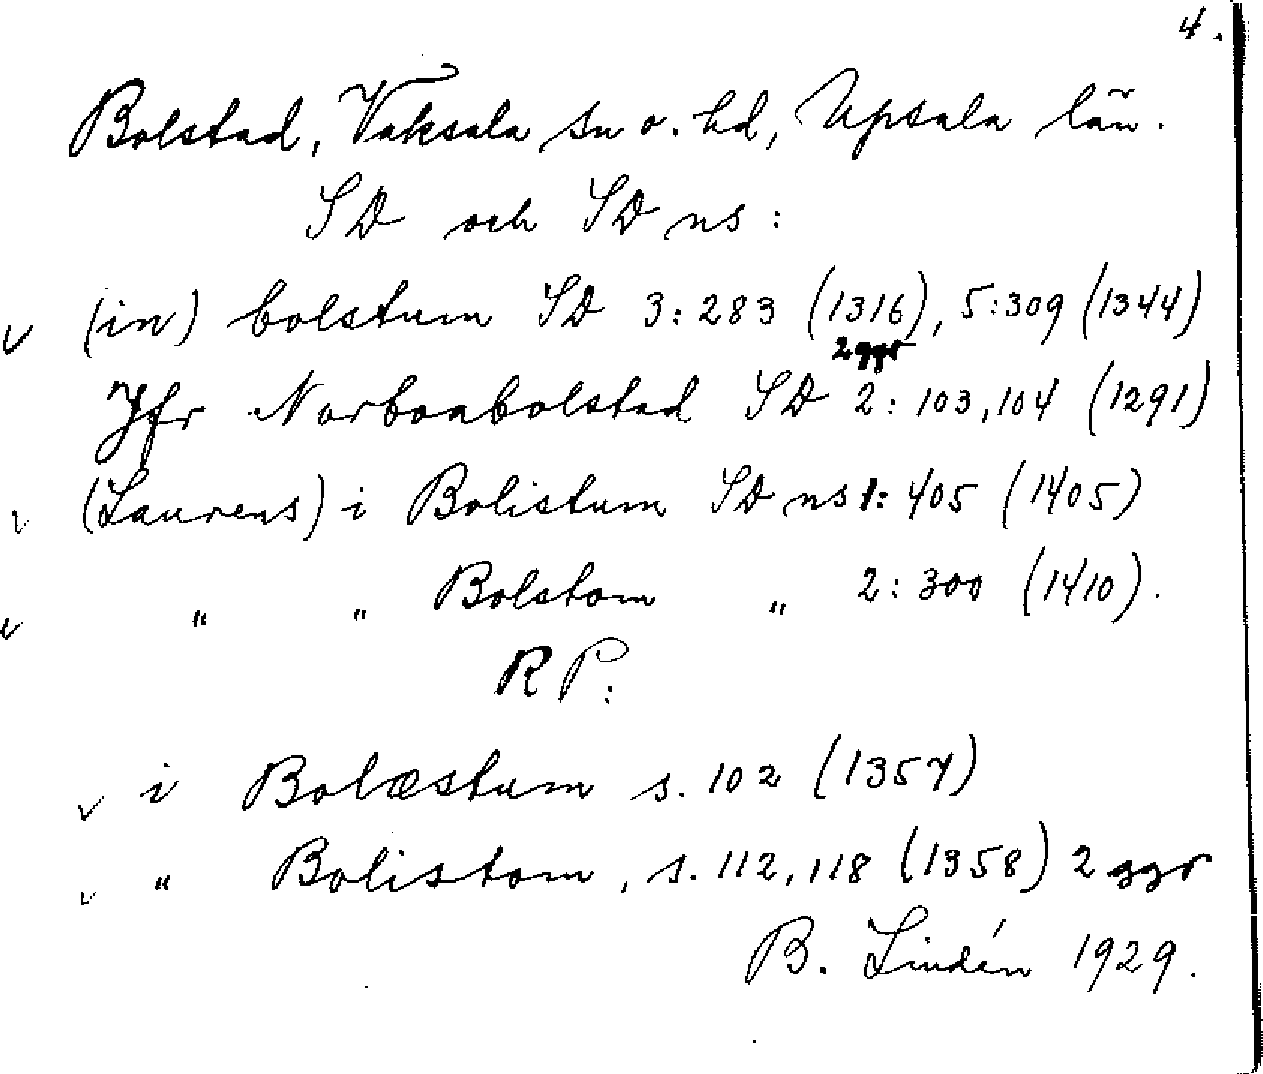 4.
Bolstad, Vaksala sn o. hd, Upsala län.
SD och SD ns:
v (in) bolstum SD 3:283 (1316), 5:309 (1344)
2 ggr
Jfr Norboabolstad SD 2: 103, 104 (1291)
v (Laurens) i Bolistum SD ns 1: 405 (1405)
v " " Bolstom " 2: 300 (1410).
RP:
v i Bolæstum s. 102 (1357)
v " Bolistom, s. 112, 118 (1358) 2 ggr
B. Lindén 1929.